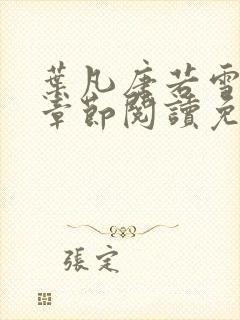 葉凡唐若雪
章節閱讀免
張定